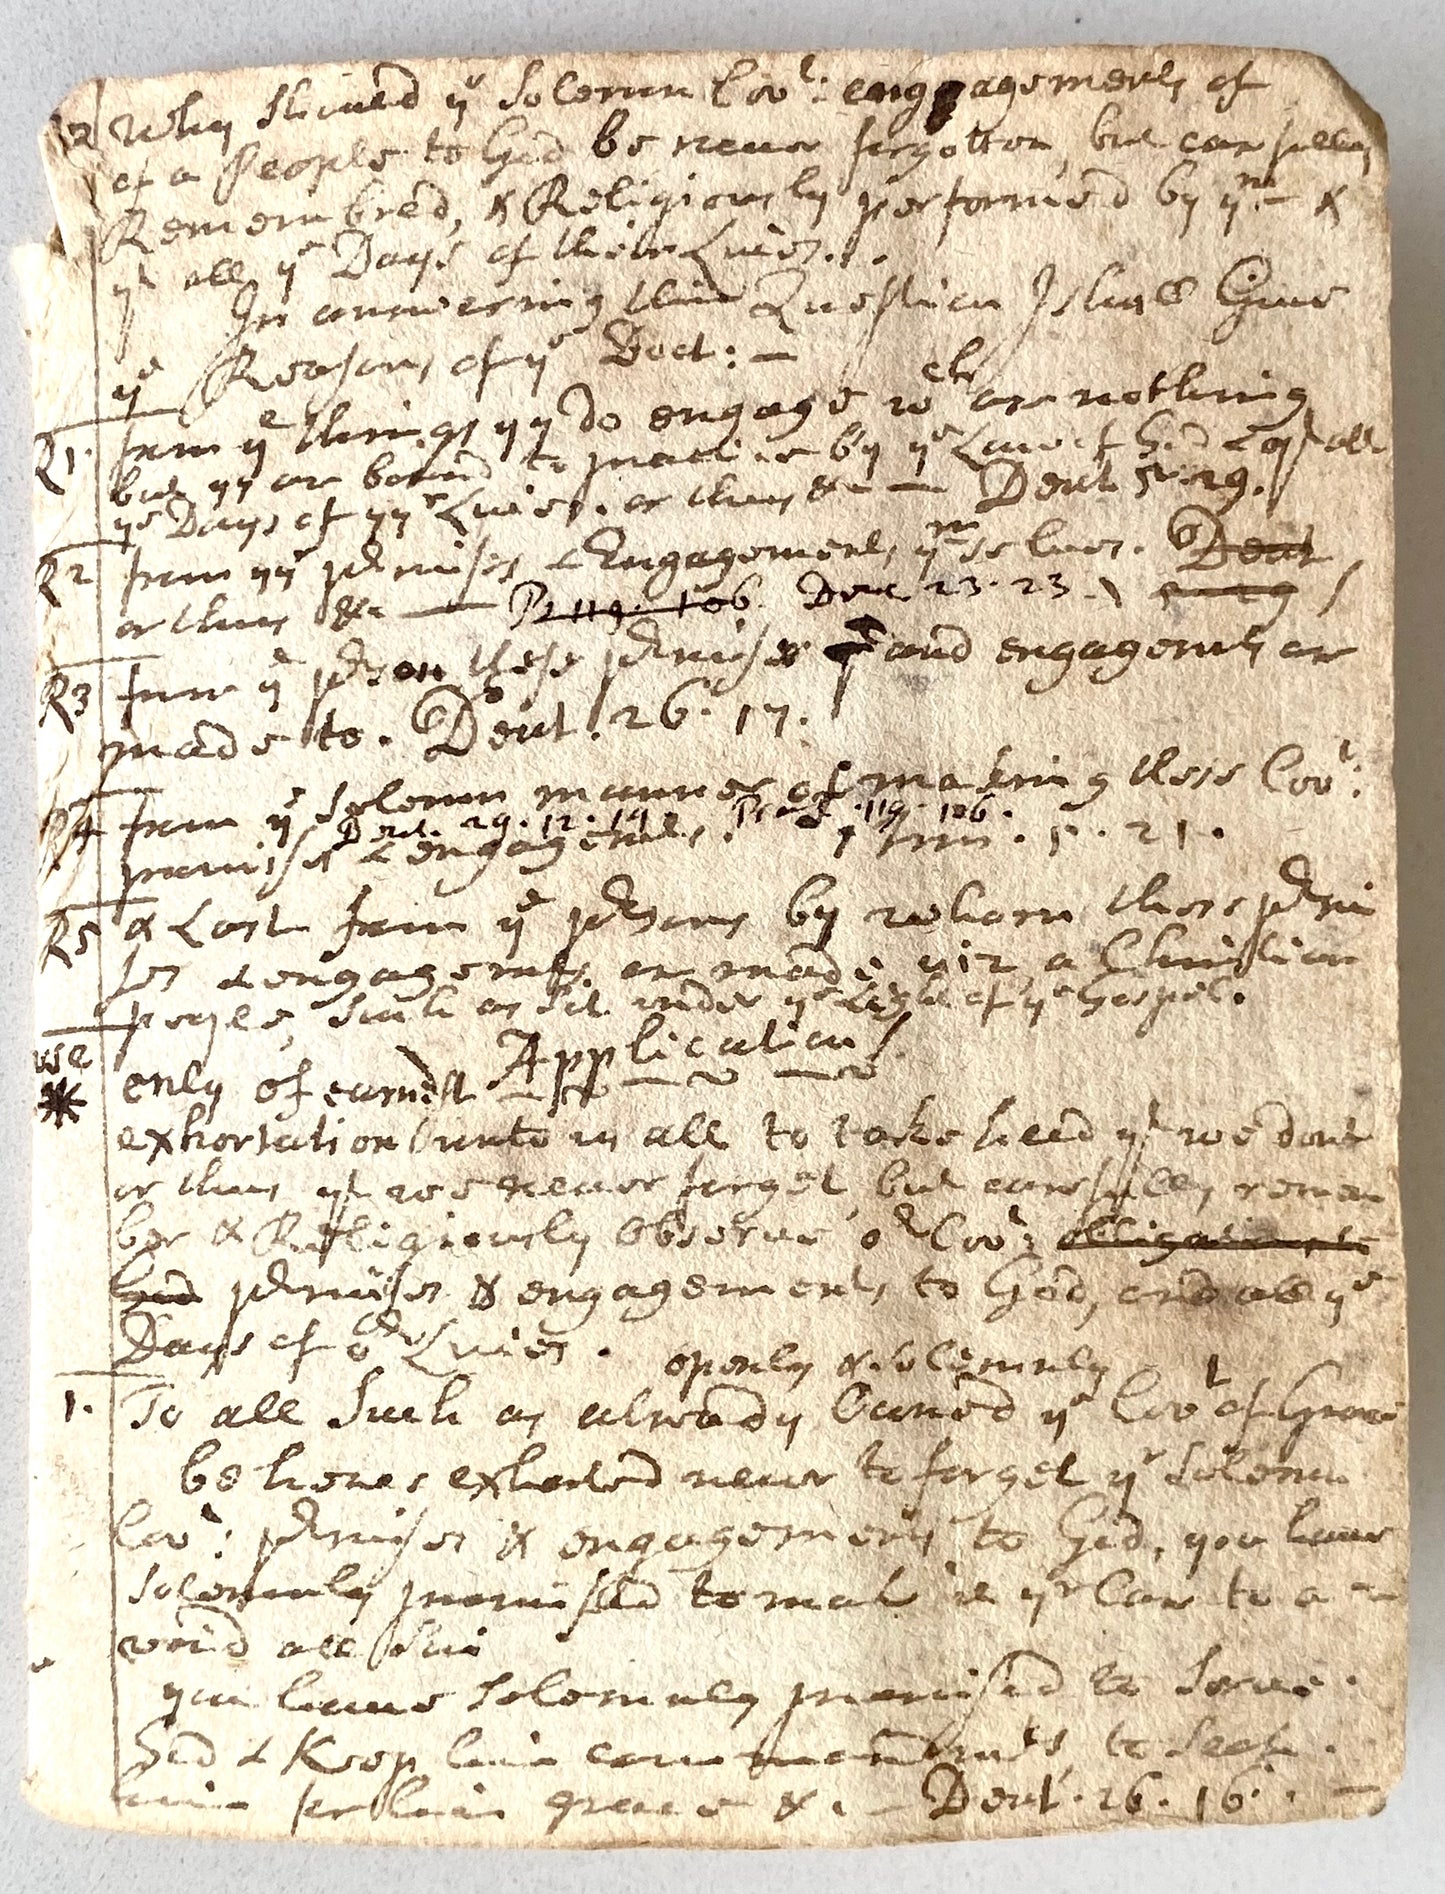 2 Why should yͤ Solemn Covᵗ: engagements of
of a People to God be never forgotten, but carefully
Remembred, & Religiously performed by yᵐ - &
yᵗ all yᵉ Days of their Lives...
In answering this Question I shall Give
yᵉ Reasons of yᵉ Doct: —
R1. from yᵉ things yy do engage wᶜʰ are nothing
but yy are bound to practise by yᵉ Law of God & yᵗ all
yᵉ Days of yyʳ Lives. or thus &c — Deut 5. 29.
R2 from yyʳ pʳmises & Engagements yᵐselves. Deut
or thus &c — Ps 119. 106. Deut 23. 23. 5 29
R3 from yᵉ pʳson these pʳmises and engagemts are
made to. Deut. 26. 17.
R4 from yᵉ solemn manner of making these Covᵗ:
Deut. 29. 12. 14. Psal. 119. 106.
promises & engagemts. 21.
R5 & Last from yᵉ pʳsons by whom these pʳmi
ses & engagemts are made viz a Christian
people, Such as Sit under yᵉ Light of yᵉ Gospel.
Application
use only of earnest
exhortation unto us all to take heed yᵗ we dont
or thus yᵗ we never forget, but carefully remem
ber & Religiously observe oʳ Covᵗ: obligations to
God pʳmises & engagements to God, and all yᵉ
Days of oʳ Lives.
openly & solemnly
1. To all Such as already Owned yᵉ Covᵗ of Grace
be hence exhorted never to forget yʳ Solemn
Covᵗ: pʳmises & engagements to God, you have
solemnly promised to make it yʳ Care to a
void all Sin
you have Solemnly promised to Serve
God & Keep his commandmᵗs, to Seek
him for his grace &c. — Deut. 26. 16. —